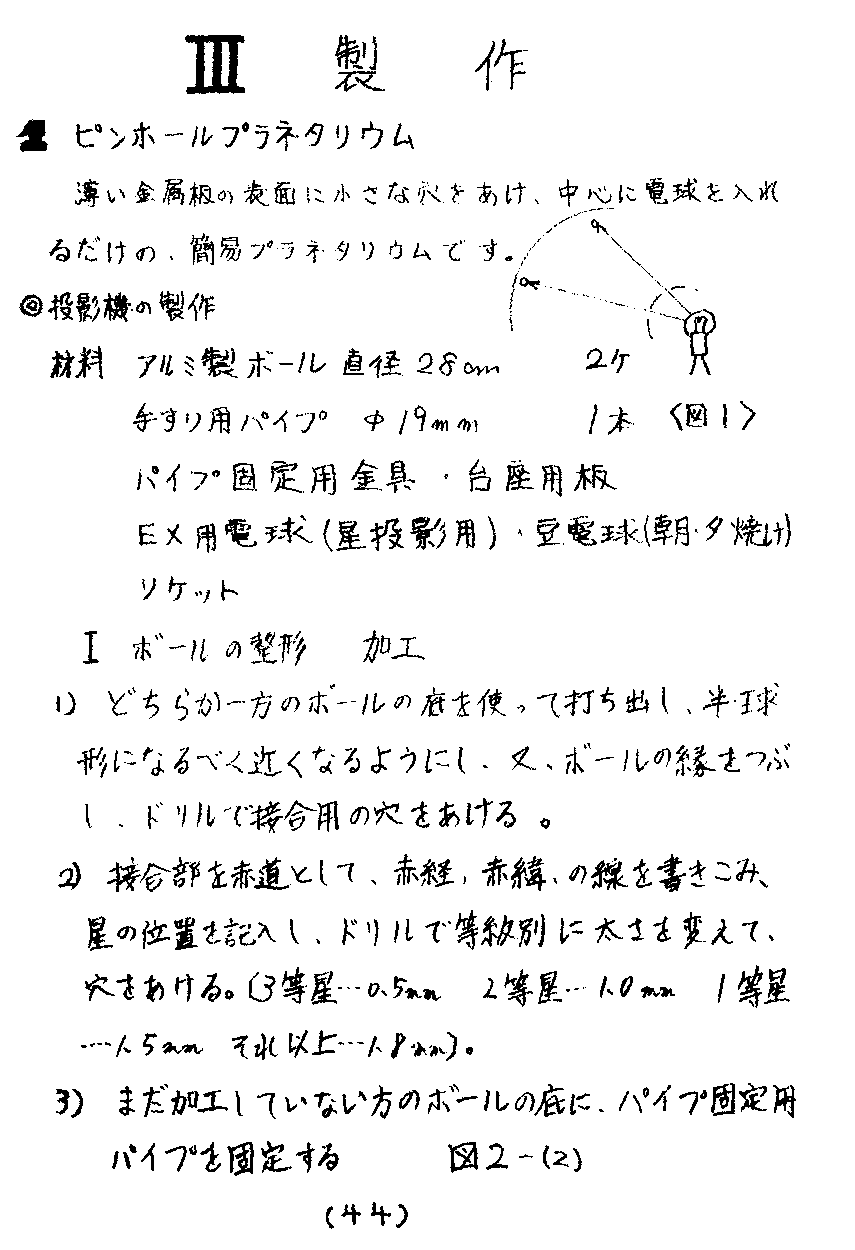 III 製作
1 ピンホールプラネタリウム
薄い金属板の表面に小さな穴をあけ、中心に電球を入れ
るだけの、簡易プラネタリウムです。
◎投影機の製作
材料 アルミ製ボール 直径28cm 2ケ
手すり用パイプ φ19mm 1本 〈図1〉
パイプ固定用金具・台座用板
EX用電球(星投影用)・豆電球(朝・夕焼け)
ソケット
I ボールの整形 加工
1) どちらか一方のボールの底を使って打ち出し、半球
形になるべく近くなるようにし、又、ボールの縁をつぶ
し、ドリルで接合用の穴をあける。
2) 接合部を赤道として、赤経,赤緯、の線を書きこみ、
星の位置を記入し、ドリルで等級別に太さを変えて、
穴をあける。(3等星…0.5mm 2等星…1.0mm 1等星
…1.5mm それ以上…1.8mm)。
3) まだ加工していない方のボールの底に、パイプ固定用
パイプを固定する 図2-(2)
(44)